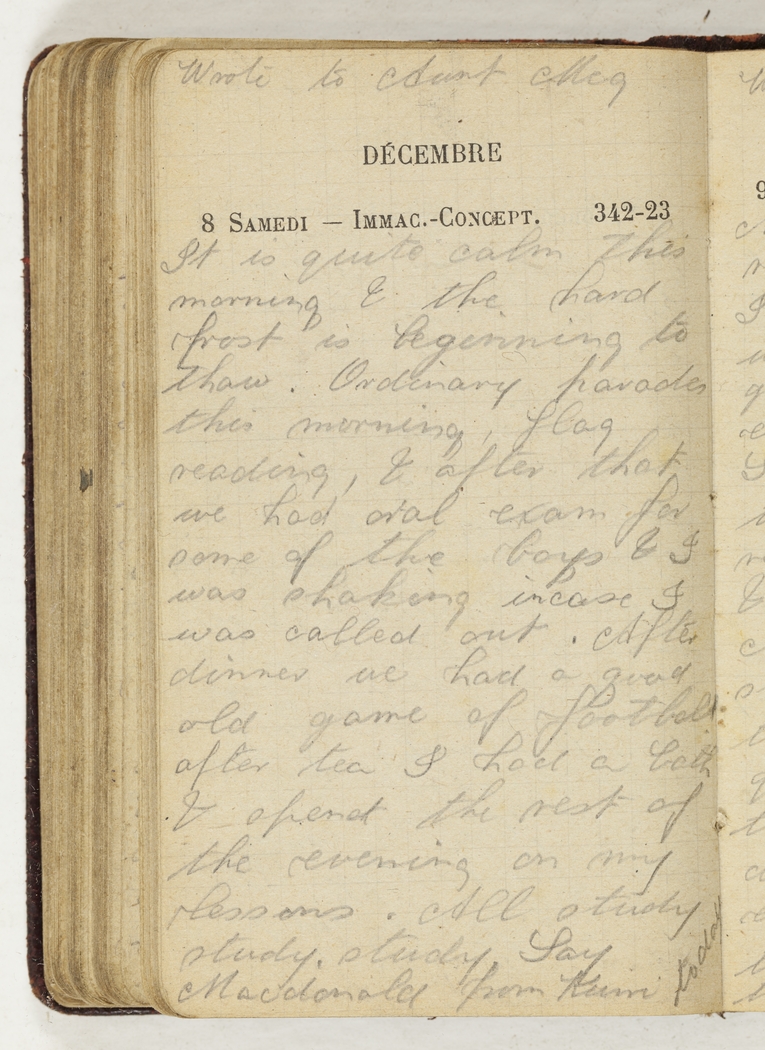 Wrote to Aunt Meg
DÉCEMBRE
8 SAMEDI — IMMAC.-CONCEPT. 342-23
It is quite calm this
morning & the hard
frost is beginning to
thaw. Ordinary parades
this morning, flag
reading, & after that
we had oral exam for
some of the boys & I
was shaking incase I
was called out. After
dinner we had a good
old game of football
after tea I had a bath
& spent the rest of
the evening on my
lessons. All study
study. study. Say
Macdonald from
today